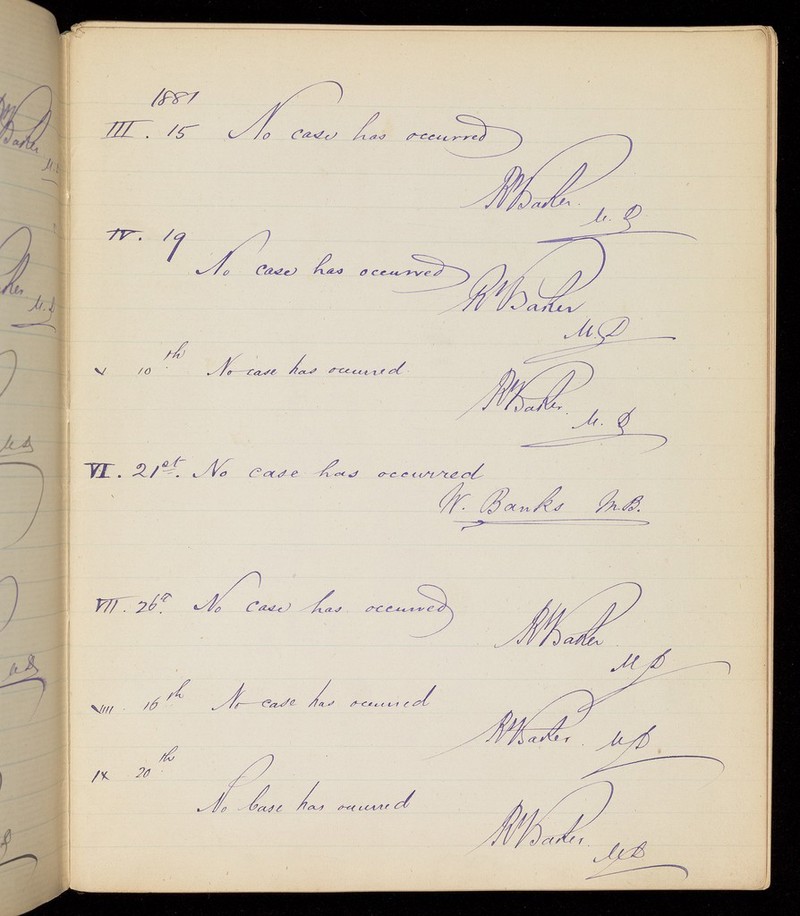 1881
III. 15 No case has occurred
R Baker M.D
IV. 19
No case has occurred
R Baker
M.D
V 10th No case has occurred
R Baker M.D
VI. 21st. No case has occurred
W. Banks M.B.
VII. 26th No case has occurred
R Baker
M D
VIII 16th No case has occurred
R Baker M D
IX 20th
No Case has occurred
R Baker
M D